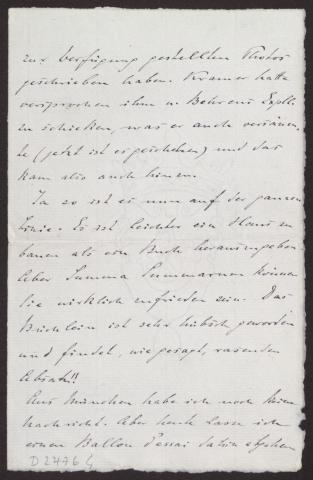 zur Verfügung gestellten Photos
geschrieben haben. Kramer hatte
versprochen ihm u. Behrens Expll.
zu schicken, was er auch versäum-
te (jetzt ist es geschehen) und das
kam also auch hinzu.
Ja so ist es nun auf der ganzen
Linie. Es ist leichter ein Haus zu
bauen als ein Buch herauszugeben.
Aber Summa Summarum können
Sie wirklich zufrieden sein. Das
Büchlein ist sehr hübsch geworden
und findet, wie gesagt, rasenden
Absatz!!
Aus München habe ich noch keine
Nachricht. Aber heute lasse ich
einen Ballon d'essai dahin abgehen
D 2476 G